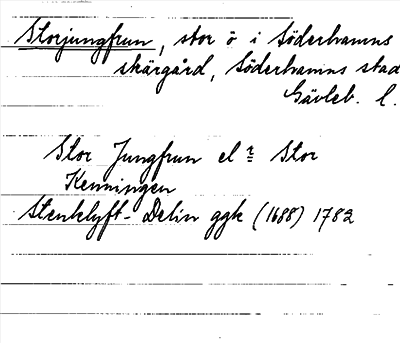 Storjungfrun, stor ö i Söderhamns
skärgård, Söderhamns stad
Gävleb. l.
Stor Jungfrun el r Stor
Kenningen
Stenklyft-Delin ggk (1688) 1782